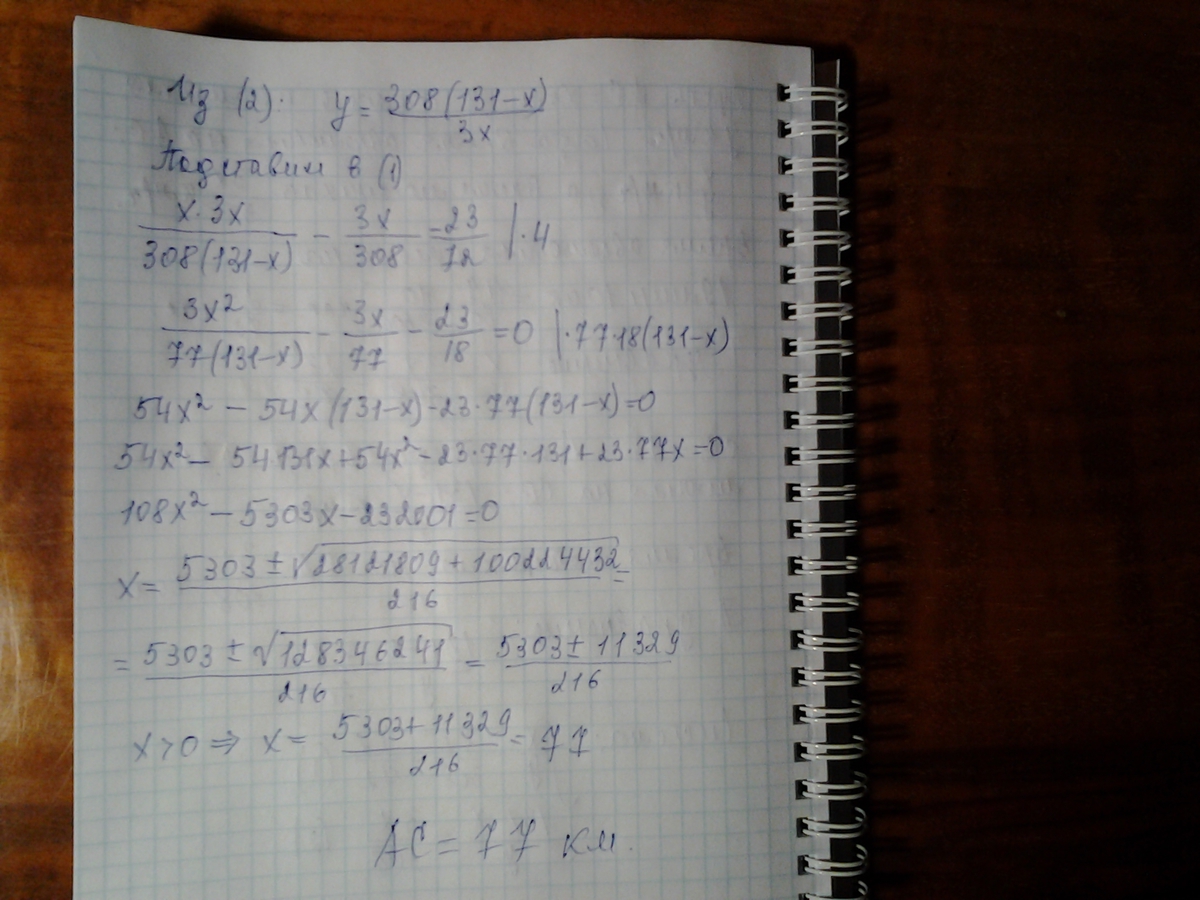 Из (2). y = 308(131-x)/3x
Подставим в (1)
x·3x/308(131-x) - 3x/308 = 23/72 |·4
3x²/77(131-x) - 3x/77 - 23/18 = 0 |·77·18(131-x)
54x² - 54x(131-x) - 23·77(131-x) = 0
54x² - 54·131x + 54x² - 23·77·131 + 23·77x = 0
108x² - 5303x - 232001 = 0
x = 5303 ± √28121809 + 100224432/216 =
= 5303 ± √128346241/216 = 5303 ± 11329/216
x > 0 ⇒ x = 5303 + 11329/216 = 77
AC = 77 км.